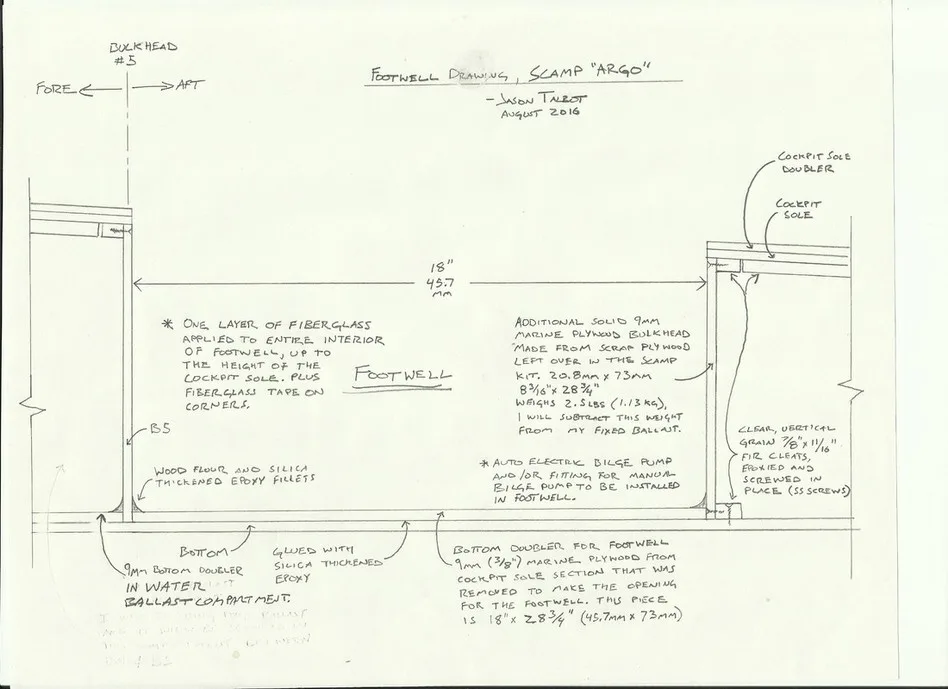 BULKHEAD
#5
FORE
AFT
FOOTWELL DRAWING, SCAMP "ARGO"
- JASON TALBOT
AUGUST 2016
COCKPIT SOLE
DOUBLER
COCKPIT
SOLE
18"
45.7
MM
* ONE LAYER OF FIBERGLASS
APPLIED TO ENTIRE INTERIOR
OF FOOTWELL, UP TO
THE HEIGHT OF THE
COCKPIT SOLE. PLUS
FIBERGLASS TAPE ON
CORNERS.
FOOTWELL
ADDITIONAL SOLID 9MM
MARINE PLYWOOD BULKHEAD
MADE FROM SCRAP PLYWOOD
LEFT OVER IN THE SCAMP
KIT. 20.8MM x 73MM
8 3/16" x 28 3/4"
WEIGHS 2.5 LBS (1.13 KG),
I WILL SUBTRACT THIS WEIGHT
FROM MY FIXED BALLAST.
B5
WOOD FLOUR AND SILICA
THICKENED EPOXY FILLETS
* AUTO ELECTRIC BILGE PUMP
AND/OR FITTING FOR MANUAL
BILGE PUMP TO BE INSTALLED
IN FOOTWELL.
CLEAR, VERTICAL
GRAIN 7/8" x 11/16"
FIR CLEATS,
EPOXIED AND
SCREWED IN
PLACE (SS SCREWS)
BOTTOM
9MM BOTTOM DOUBLER
IN WATER
BALLAST COMPARTMENT.
GLUED WITH
SILICA THICKENED
EPOXY
BOTTOM DOUBLER FOR FOOTWELL
9MM (3/8") MARINE PLYWOOD FROM
COCKPIT SOLE SECTION THAT WAS
REMOVED TO MAKE THE OPENING
FOR THE FOOTWELL. THIS PIECE
IS 18" x 28 3/4" (45.7MM x 73MM)